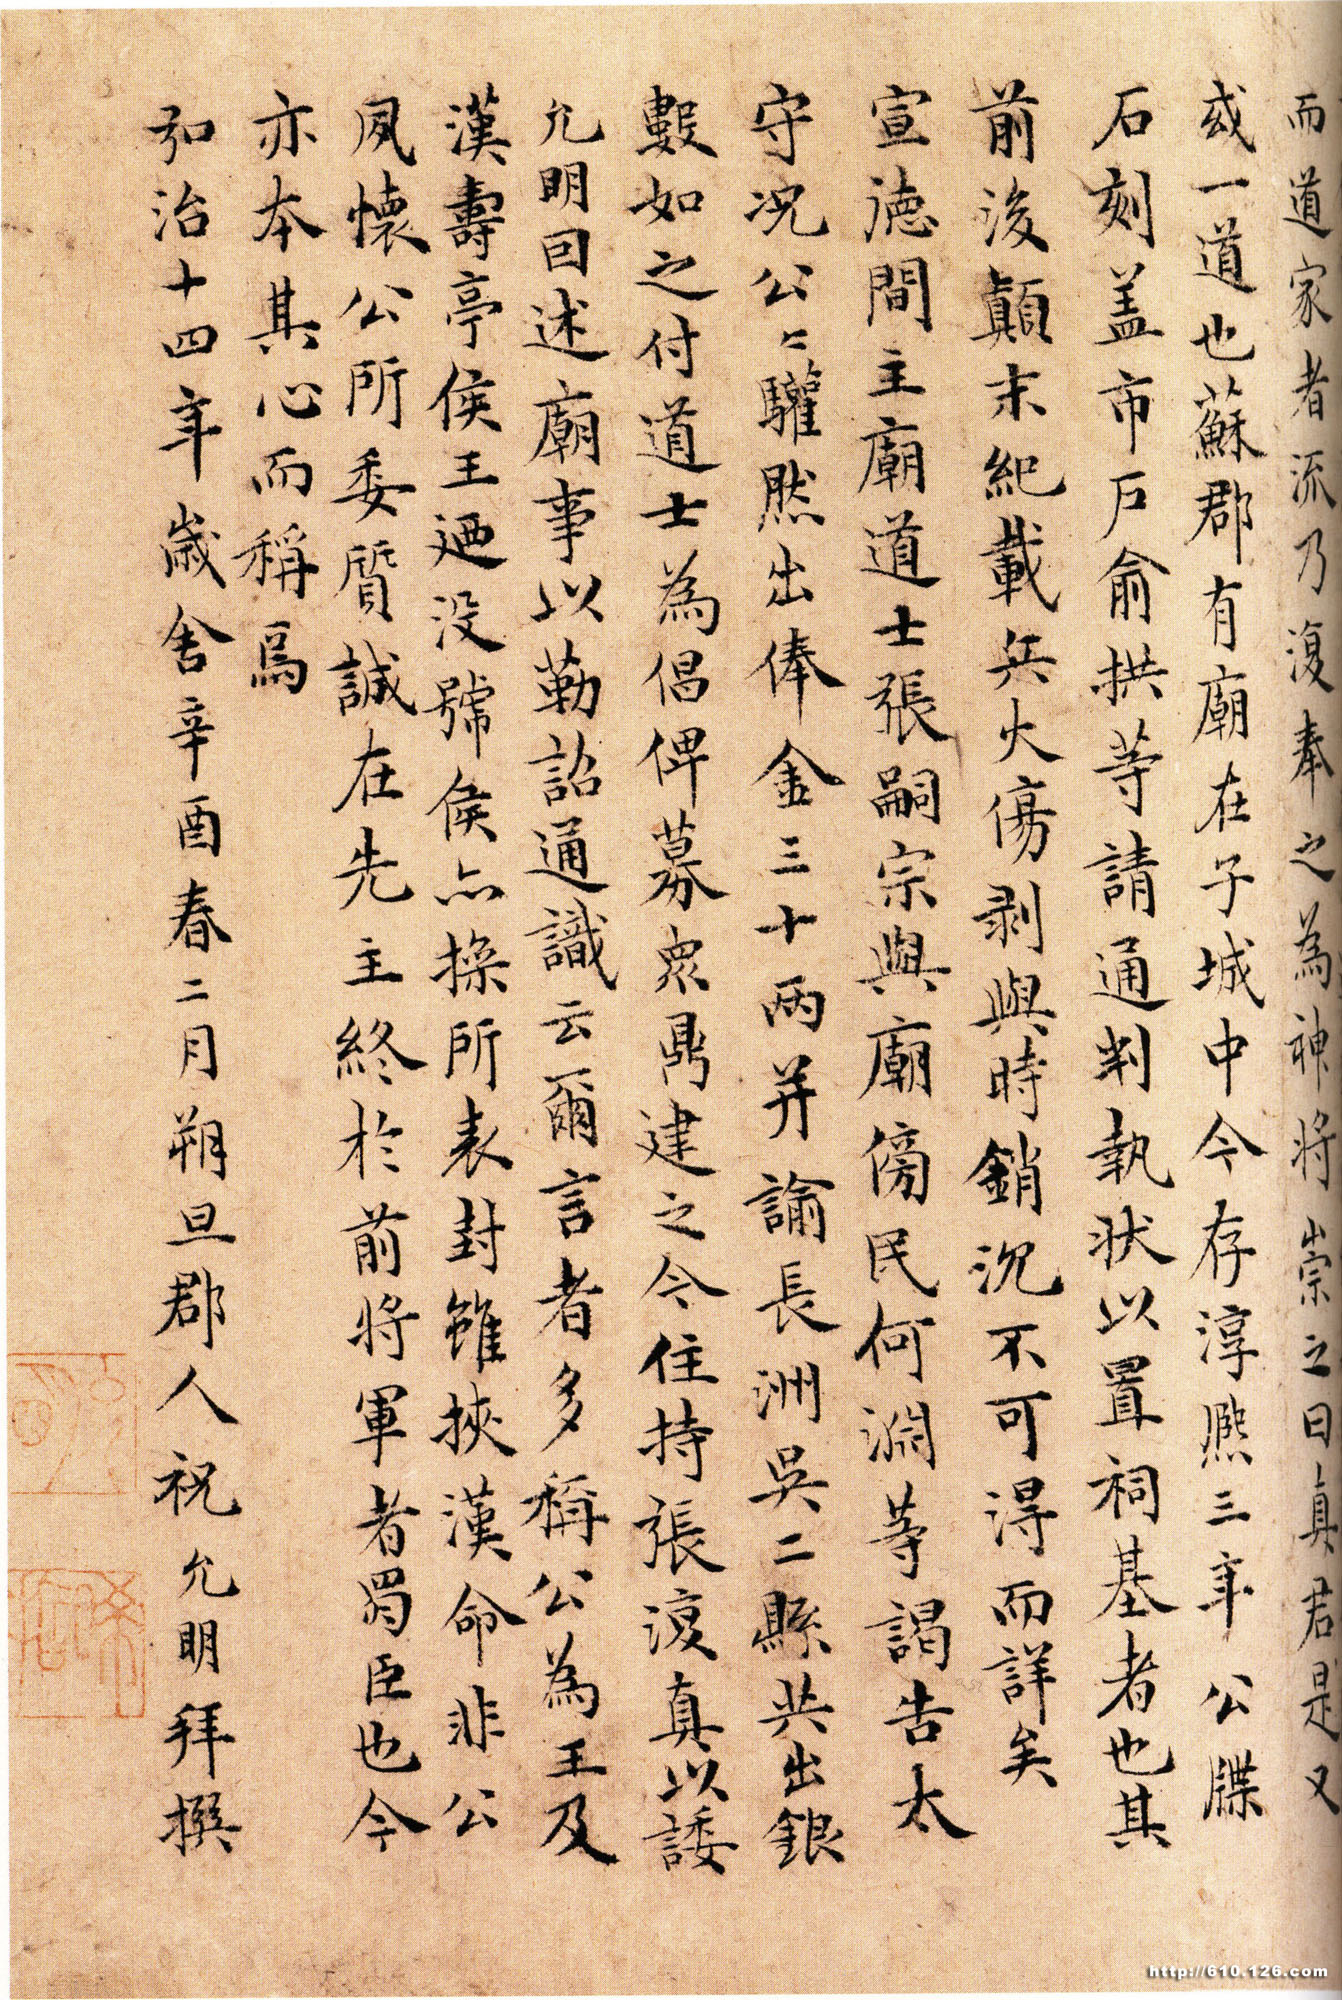 而道家者流乃復奉之為神將崇之曰真君是又
或一道也蘇郡有廟在子城中今存淳熙三年公牒
石刻盖市戶俞拱等請通判執状以置祠基者也其
前後顛末紀載兵火傷剥與時銷沉不可得而詳矣
宣德間主廟道士張嗣宗與廟傍民何淵等謁告太
守况公〻驩然出俸金三十兩并諭長洲吳二縣共出銀
數如之付道士為倡俾募眾鼎建之今住持張復真以諉
允明回述廟事以勒詔通識云爾言者多稱公為王及
漢壽亭侯王廼没號侯亦操所表封雖挾漢命非公
夙懷公所委質誠在先主終於前將軍者蜀臣也今
亦本其心而稱焉
弘治十四年歲舍辛酉春二月朔旦郡人祝允明拜撰
http://610.126.com